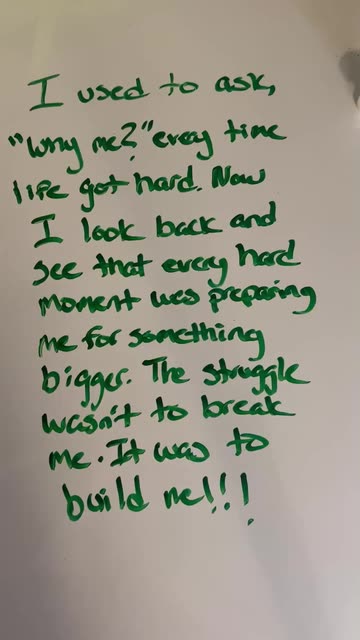 I used to ask,
"Why me?" every time
life got hard. Now
I look back and
see that every hard
moment was preparing
me for something
bigger. The struggle
wasn't to break
me. It was to
build me!!!